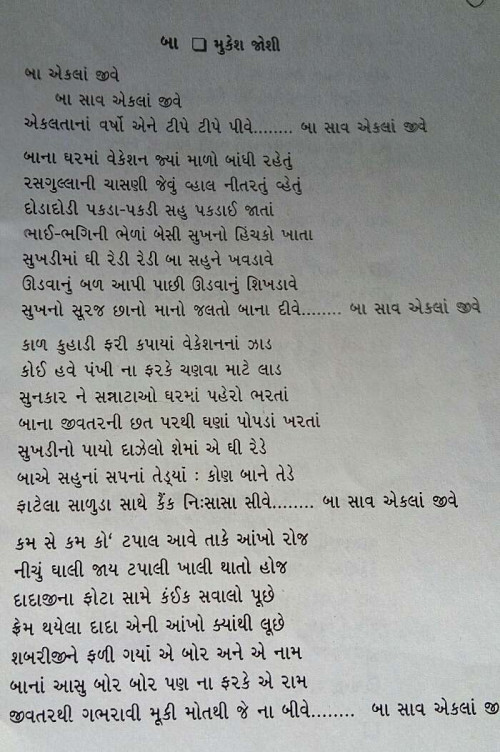 બા □ મુકેશ જોશી
બા એકલાં જીવે
બા સાવ એકલાં જીવે
એકલતાનાં વર્ષો એને ટીપે ટીપે પીવે........ બા સાવ એકલાં જીવે
બાના ઘરમાં વેકેશન જ્યાં માળો બાંધી રહેતું
રસગુલ્લાની ચાસણી જેવું વ્હાલ નીતરતું વ્હેતું
દોડાદોડી પકડા-પકડી સહુ પકડાઈ જાતાં
ભાઈ-ભગિની ભેળાં બેસી સુખનો હિંચકો ખાતા
સુખડીમાં ઘી રેડી રેડી બા સહુને ખવડાવે
ઊડવાનું બળ આપી પાછી ઊડવાનું શિખડાવે
સુખનો સૂરજ છાનો માનો જલતો બાના દીવે........ બા સાવ એકલાં જીવે
કાળ કુહાડી ફરી કપાયાં વેકેશનનાં ઝાડ
કોઈ હવે પંખી ના ફરકે ચણવા માટે લાડ
સુનકાર ને સન્નાટાઓ ઘરમાં પહેરો ભરતાં
બાના જીવતરની છત પરથી ઘણાં પોપડાં ખરતાં
સુખડીનો પાયો દાઝેલો શેમાં એ ઘી રેડે
બાએ સહુનાં સપનાં તેડ્યાં : કોણ બાને તેડે
ફાટેલા સાળુડા સાથે કૈંક નિઃસાસા સીવે........ બા સાવ એકલાં જીવે
કમ સે કમ કો‘ ટપાલ આવે તાકે આંખો રોજ
નીચું ઘાલી જાય ટપાલી ખાલી થાતો હોજ
દાદાજીના ફોટા સામે કંઈક સવાલો પૂછે
ફ્રેમ થયેલા દાદા એની આંખો ક્યાંથી લૂછે
શબરીજીને ફળી ગયાં એ બોર અને એ નામ
બાનાં આસુ બોર બોર પણ ના ફરકે એ રામ
જીવતરથી ગભરાવી મૂકી મોતથી જે ના બીવે........ બા સાવ એકલાં જી